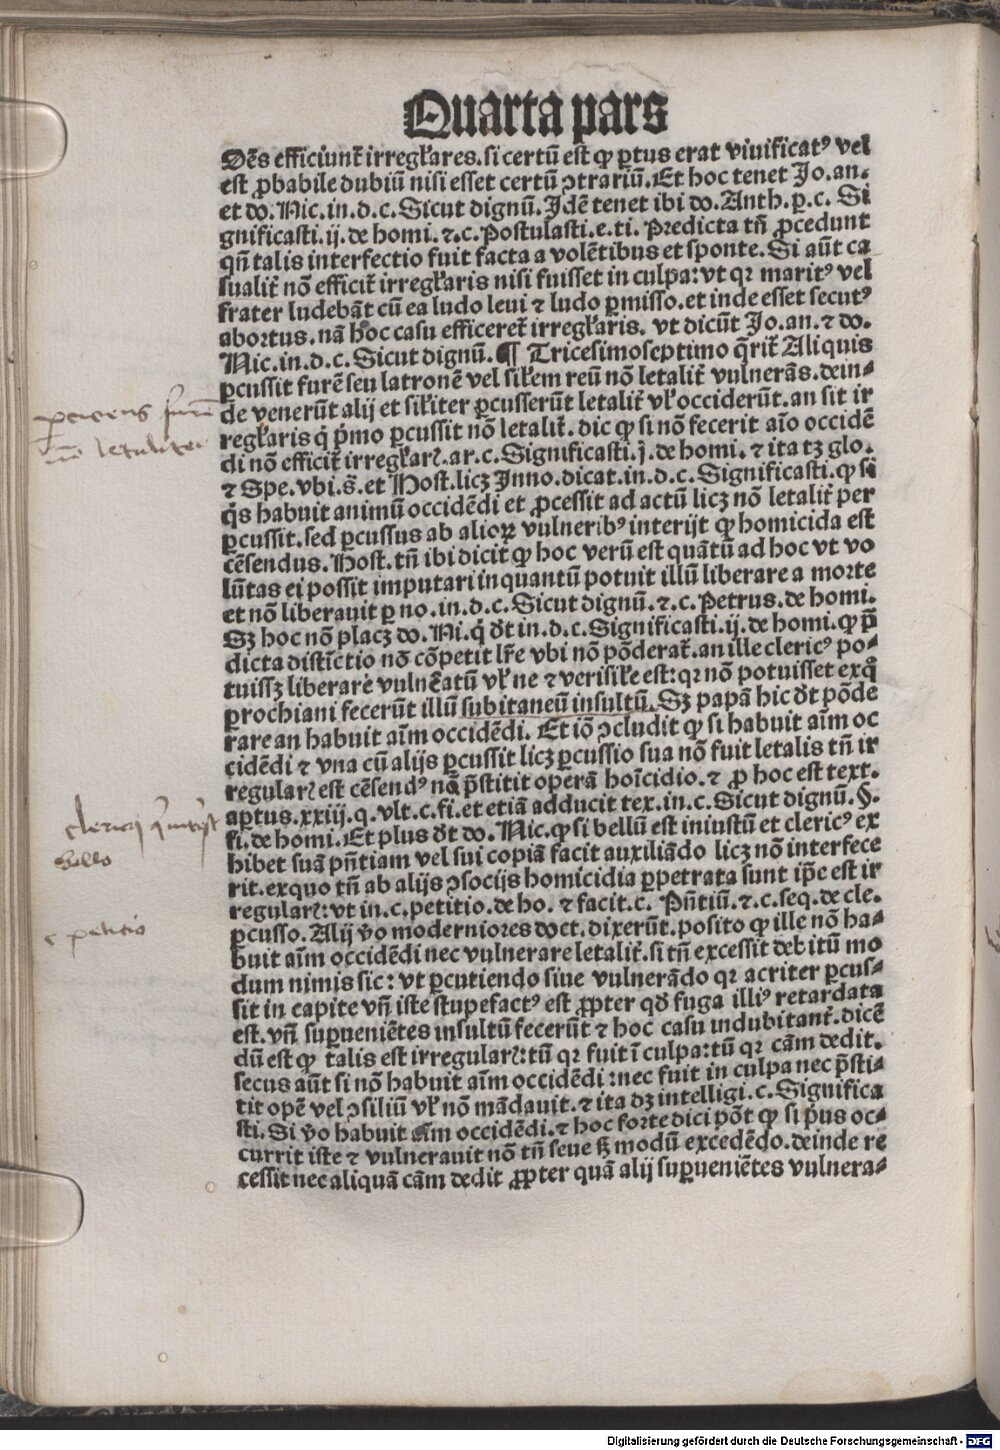 Quarta pars
Dẽs efficiunt̃ irregl̃ares. si certũ est ꝙ ꝑtus erat viuificatꝰ vel
est ꝓbabile dubiũ nisi esset certũ ꝯtrariũ. Et hoc tenet Jo. an.
et do. Nic. in. d. c. Sicut dignũ. Jdẽ tenet ibi do. Anth. ꝑ. c. Si
gnificasti. ij. de homi. ⁊. c. Postulasti. e. ti. Predicta tñ ꝓcedunt
qñ talis interfectio fuit facta a volẽtibus et sponte. Si aũt ca
sualit̃ nõ efficit̃ irregl̃aris nisi fuisset in culpa: vt qꝛ maritꝰ vel
frater ludebãt cũ ea ludo leui ⁊ ludo ꝑmisso. et inde esset secutꝰ
abortus. nã hoc casu efficeret̃ irregl̃aris. vt dicũt Jo. an. ⁊ do.
Nic. in. d. c. Sicut dignũ. ¶ Tricesimoseptimo q̃rit̃ Aliquis
ꝑcussit furẽ seu latronẽ vel sil̃em reũ nõ letalit̃ vulnerãs. dein-
de venerũt alij et sil̃iter ꝑcusserũt letalit̃ vl̃ occiderũt. an sit ir
regl̃aris q̇ p̃mo ꝑcussit nõ letalit̃. dic ꝙ si nõ fecerit aĩo occidẽ
di nõ efficit̃ irregl̃arꝭ. ar. c. Significasti. j̃. de homi. ⁊ ita tꝫ glo.
⁊ Spe. vbi. s̃. et Host. licꝫ Inno. dicat. in. d. c. Significasti. ꝙ si
q̃s habuit animũ occidẽdi et ꝓcessit ad actũ licꝫ nõ letalit̃ per
ꝑcussit. sed ꝑcussus ab alioꝝ vulneribꝰ interijt ꝙ homicida est
cẽsendus. Host. tñ ibi dicit ꝙ hoc verũ est quãtũ ad hoc vt vo
lũtas ei possit imputari inquantũ potuit illũ liberare a morte
et nõ liberauit ꝑ no. in. d. c. Sicut dignũ. ⁊. c. Petrus. de homi.
Sꝫ hoc nõ placꝫ do. Ni. q̇ dt̃ in. d. c. Significasti. ij. de homi. ꝙ p̃
dicta distĩctio nõ cõpetit lr̃e vbi nõ põderat̃. an ille clericꝰ po-
tuissꝫ liberare vulnẽatũ vl̃ ne ⁊ verisil̃e est: qꝛ nõ potuisset exq̃
ꝑrochiani fecerũt illũ subitaneũ insultũ. Sꝫ papã hic dt̃ põde
rare an habuit aĩm occidẽdi. Et iõ ꝯcludit ꝙ si habuit aĩm oc
cidẽdi ⁊ vna cũ alijs ꝑcussit licꝫ ꝑcussio sua nõ fuit letalis tñ ir
regularꝭ est cẽsendꝰ nã p̃stitit operã hoĩcidio. ⁊ ꝓ hoc est text.
aꝑtus. xxiij. q. vlt. c. fi. et etiã adducit tex. in. c. Sicut dignũ. §.
fi. de homi. Et plus dt̃ do. Nic. ꝙ si bellũ est iniustũ et clericꝰ ex
hibet suã pñtiam vel sui copiã facit auxiliãdo licꝫ nõ interfece
rit. exquo tñ ab alijs ꝯsocijs homicidia ꝑpetrata sunt ip̃e est ir
regularꝭ: vt in. c. petitio. de ho. ⁊ facit. c. Pñtiũ. ⁊. c. seq. de cle.
ꝑcusso. Alij ṽo moderniores doct. dixerũt. posito ꝙ ille nõ ha-
buit aĩm occidẽdi nec vulnerare letalit̃. si tñ excessit debitũ mo
dum nimis sic: vt ꝑcutiendo siue vulnerãdo qꝛ acriter ꝑcus-
sit in capite vñ iste stupefactꝰ est ꝓpter qd̃ fuga illiꝰ retardata
est. vñ suꝑueniẽtes insultũ fecerũt ⁊ hoc casu indubitant̃. dicẽ
dũ est ꝙ talis est irregularꝭ: tũ qꝛ fuit ĩ culpa: tũ qꝛ cãm dedit.
secus aũt si nõ habuit aĩm occidẽdi: nec fuit in culpa nec p̃sti-
tit opẽ vel ꝯsiliũ vl̃ nõ mãdauit. ⁊ ita dꝫ intelligi. c. Significa
sti. Si ṽo habuit aĩm occidẽdi. ⁊ hoc forte dici põt ꝙ si p̃us oc-
currit iste ⁊ vulnerauit nõ tñ seue ꝭ modũ excedẽdo. deinde re
cessit nec aliquã cãm dedit ꝓpter quã alij suꝑueniẽtes vulnera-
percuciens furem
nõ letaliter
clerici
bello
c petitio